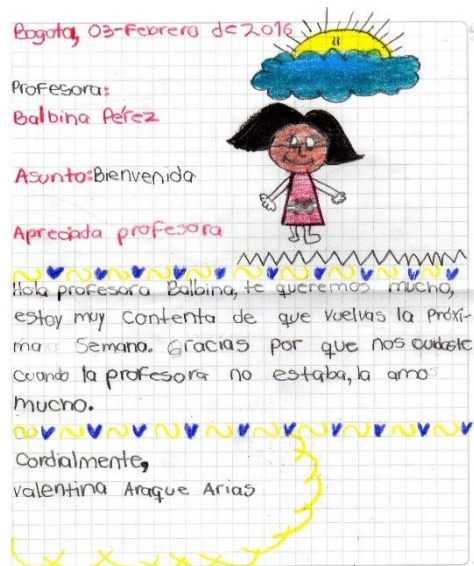 Bogotá, 03-Febrero de 2016
Profesora:
Balbina Pérez
Asunto:Bienvenida
Apreciada profesora
Hola profesora Balbina, te queremos mucho,
estoy muy contenta de que vuelvas la próxi-
ma semana. Gracias por que nos cuidaste
cuando la profesora no estaba, la amo
mucho.
Cordialmente,
Valentina Araque Arias